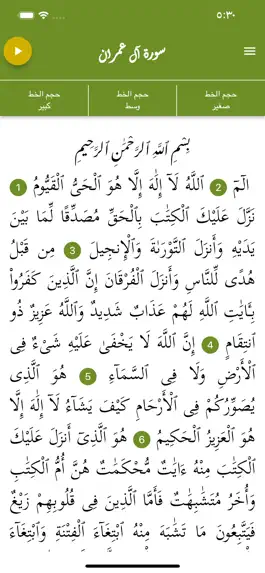 ٥:٣٠
سورة آل عمران
حجم الخط صغير
حجم الخط وسط
حجم الخط كبير
بِسْمِ ٱللَّهِ ٱلرَّحْمَٰنِ ٱلرَّحِيمِ
الٓمٓ 1 ٱللَّهُ لَآ إِلَٰهَ إِلَّا هُوَ ٱلْحَىُّ ٱلْقَيُّومُ 2
نَزَّلَ عَلَيْكَ ٱلْكِتَٰبَ بِٱلْحَقِّ مُصَدِّقًا لِّمَا بَيْنَ
يَدَيْهِ وَأَنزَلَ ٱلتَّوْرَىٰةَ وَٱلْإِنجِيلَ 3 مِن قَبْلُ
هُدًى لِّلنَّاسِ وَأَنزَلَ ٱلْفُرْقَانَ إِنَّ ٱلَّذِينَ كَفَرُوا۟
بِـَٔايَٰتِ ٱللَّهِ لَهُمْ عَذَابٌ شَدِيدٌ وَٱللَّهُ عَزِيزٌ ذُو
ٱنتِقَامٍ 4 إِنَّ ٱللَّهَ لَا يَخْفَىٰ عَلَيْهِ شَىْءٌ فِى
ٱلْأَرْضِ وَلَا فِى ٱلسَّمَآءِ 5 هُوَ ٱلَّذِى
يُصَوِّرُكُمْ فِى ٱلْأَرْحَامِ كَيْفَ يَشَآءُ لَآ إِلَٰهَ إِلَّا
هُوَ ٱلْعَزِيزُ ٱلْحَكِيمُ 6 هُوَ ٱلَّذِىٓ أَنزَلَ عَلَيْكَ
ٱلْكِتَٰبَ مِنْهُ ءَايَٰتٌ مُّحْكَمَٰتٌ هُنَّ أُمُّ ٱلْكِتَٰبِ
وَأُخَرُ مُتَشَٰبِهَٰتٌ فَأَمَّا ٱلَّذِينَ فِى قُلُوبِهِمْ زَيْغٌ
فَيَتَّبِعُونَ مَا تَشَٰبَهَ مِنْهُ ٱبْتِغَآءَ ٱلْفِتْنَةِ وَٱبْتِغَآءَ